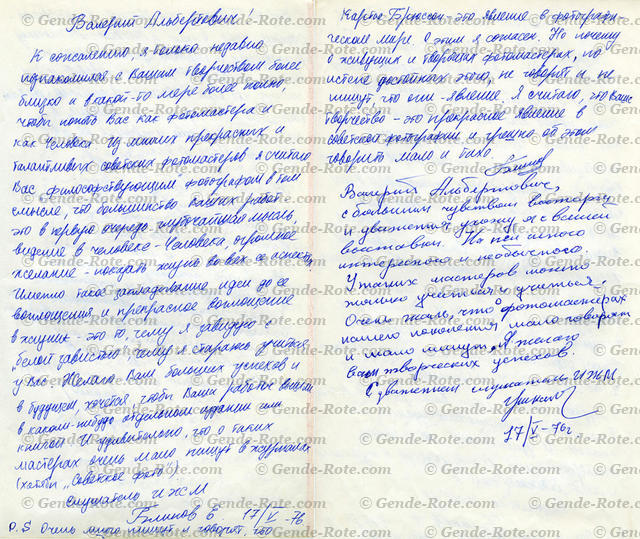 Валерий Альбертович!
К сожалению, я только недавно
познакомился с Вашим творчеством более
близко и в какой-то мере более полно,
чтобы понять Вас как фотомастера и
как человека. Из многих прекрасных и
талантливых советских фотомастеров я считаю
Вас „философствующим" фотографом в том
смысле, что большинство Ваших работ
это в первую очередь глубочайшая мысль,
видение в человеке - Человека, огромное
желание - показать жизнь во всех ее аспектах.
Именно такое закладование идеи до ее
воплощения и прекрасное воплощение
в жизнь - это то, чему я завидую
„белой завистью" чему я стараюсь учиться
у Вас. Желаю Вам больших успехов и
в будущем, хочется, чтобы Ваши работы вышли
в каком-нибудь отдельном издании или
книгой. И удивительно, что о таких
мастерах очень мало пишут в журналах
(хотя бы „Советское фото"!)
слушатель ИЖМ
Блинов Б 17/V-76
P.S Очень много пишут и говорят, что
Картье-Брессон - это явление в фотографи-
ческом мире. С этим я согласен. Но почему
о живущих и творящих фотомастерах, по
истене достойных этого, не говорят и не
пишут, что они - явление. Я считаю, что Ваше
творчество - это прекрасное явление в
советской фотографии и грешно об этом
говорить мало и тихо.
Блинов
Валерий Альбертович,
с большим чувством восторга
и уважения ухожу я с Вашей
выставки. На ней много
интересного и необычного.
У таких мастеров можно
только учиться и учиться.
Очень жаль, что о фотомастерах
нашего поколения мало говорят
и мало пишут. Я желаю
Вам творческих успехов.
С уважением слушатель ИЖМ
17/V-76г
© Gende-Rote.com